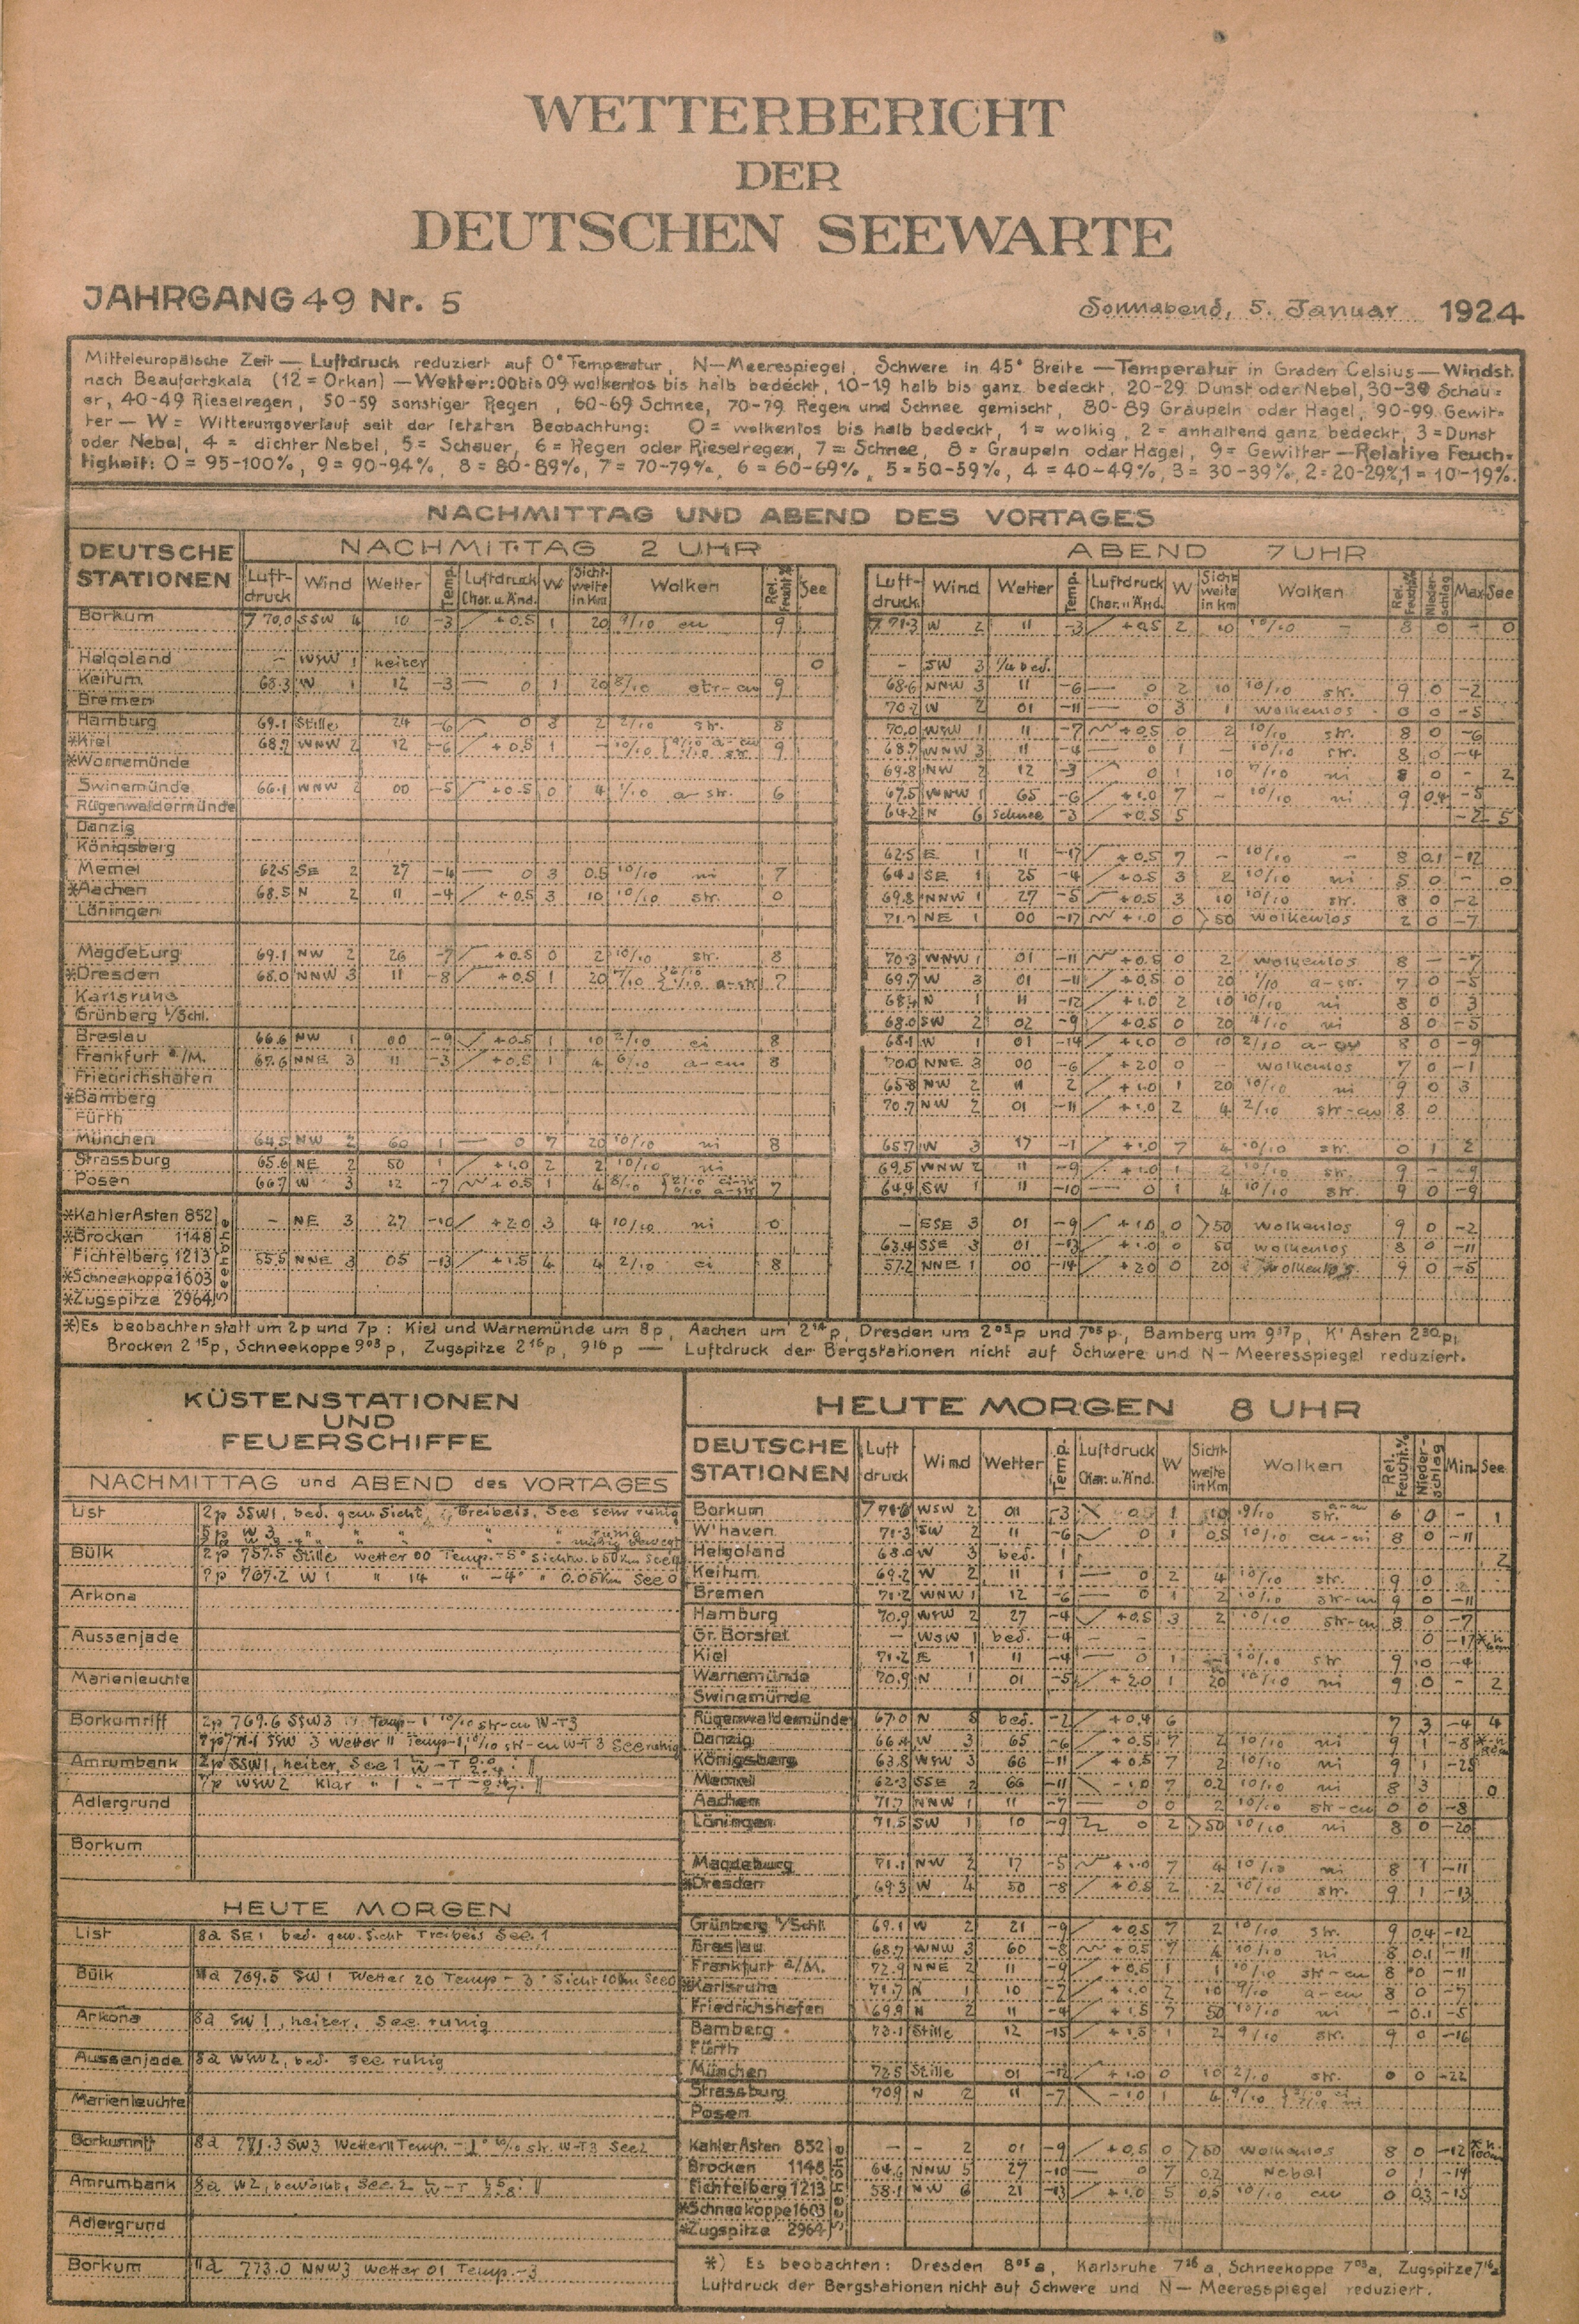 WETTERBERICHT
DER
DEUTSCHEN SEEWARTE
JAHRGANG 49 Nr. 5 Sonnabend, 5. Januar 1924
Mitteleuropäische Zeit — Luftdruck reduziert auf 0° Temperatur, N—Meerespiegel, Schwere in 45° Breite —Temperatur in Graden Celsius—Windst.
nach Beaufortskala (12 = Orkan) —Wetter: 00 bis 09 wolkenlos bis halb bedeckt, 10-19 halb bis ganz bedeckt, 20-29 Dunst oder Nebel, 30-39 Schau=
er, 40-49 Rieselregen, 50-59 sonstiger Regen, 60-69 Schnee, 70-79 Regen und Schnee gemischt, 80-89 Graupeln oder Hagel, 90-99 Gewit=
ter — W = Witterungsverlauf seit der letzten Beobachtung: 0 = wolkenlos bis halb bedeckt, 1 = wolkig, 2 = anhaltend ganz bedeckt, 3 = Dunst
oder Nebel, 4 = dichter Nebel, 5 = Schauer, 6 = Regen oder Rieselregen, 7 = Schnee, 8 = Graupeln oder Hagel, 9 = Gewitter —Relative Feuch=
tigkeit: 0 = 95-100%, 9 = 90-94%, 8 = 80-89%, 7 = 70-79%, 6 = 60-69%, 5 = 50-59%, 4 = 40-49%, 3 = 30-39%, 2 = 20-29%, 1 = 10-19%.
NACHMITTAG UND ABEND DES VORTAGES
DEUTSCHE STATIONEN
NACHMITTAG 2 UHR
Luft-druck Wind Wetter Temp. Luftdruck Char. u. Änd. W Sicht-weite in Km Wolken Rel. Feucht.% See
ABEND 7 UHR
Luft-druck Wind Wetter Temp. Luftdruck Char. u. Änd. W Sicht-weite in Km Wolken Rel. Feucht.% Nieder-schlag Max See
Borkum 770.0 SSW 4 10 -3 +0.5 1 20 9/10 cu 9 771.3 W 2 11 -3 +0.5 2 10 10/10 – 8 0 – 0
Helgoland – WSW 1 heiter 0 – SW 3 1/4 bed.
Keitum 68.3 W 1 12 -3 — 0 1 20 8/10 str-cu 9 68.6 NNW 3 11 -6 — 0 2 10 10/10 str. 9 0 -2
Bremen 70.2 W 2 01 -11 — 0 3 1 wolkenlos 0 0 -5
Hamburg 69.1 Stille 24 -6 0 3 2 2/10 str. 8 70.0 WSW 1 11 -7 +0.5 0 2 10/10 str. 8 0 -6
*Kiel 68.7 WNW 2 12 -6 +0.5 1 – 10/10 9 68.7 WNW 3 11 -4 — 0 1 – 10/10 str. 8 0 -4
*Warnemünde 69.8 NW 2 12 -3 0 1 10 ni 8 0 – 2
Swinemünde 66.1 WNW 2 00 -5 +0.5 0 4 1/10 a-str. 6 67.5 WNW 1 65 -6 +1.0 7 – 10/10 ni 9 0.4 -5
Rügenwaldermünde 64.2 N 6 Schnee -3 +0.5 5 -2 5
Danzig
Königsberg 62.5 E 1 11 -17 +0.5 7 – 10/10 – 8 0.1 -12
Memel 62.5 SE 2 27 -4 — 0 3 0.5 10/10 ni 7 SE 1 25 -4 +0.5 3 2 10/10 ni 5 0 – 0
*Aachen 68.5 N 2 11 -4 +0.5 3 10 10/10 str. 0 69.8 NNW 1 27 -5 +0.5 3 10 10/10 str. 8 0 -2
Löningen NE 1 00 -17 +1.0 0 >50 wolkenlos 2 0 -7
Magdeburg 69.1 NW 2 26 -7 +0.5 0 2 10/10 str. 8 70.3 WNW 1 01 -11 +0.5 0 2 wolkenlos 8 – -7
*Dresden 68.0 NNW 3 11 -8 +0.5 1 20 7/10 a-str 7 69.7 W 3 01 -11 +0.5 0 20 1/10 a-str. 7 0 -5
Karlsruhe 68.4 N 1 11 -12 +1.0 2 10 10/10 ni 8 0 3
Grünberg i/Schl. 68.0 SW 2 02 -9 +0.5 0 20 ni 8 0 -5
Breslau 66.6 NW 1 00 -9 +0.5 1 10 2/10 ci 8 68.1 W 1 01 -14 +1.0 0 10 2/10 8 0 -9
Frankfurt a/M. 67.6 NNE 3 11 -3 +0.5 1 4 6/10 a-cu 8 70.0 NNE 3 00 -6 +2.0 0 – wolkenlos 7 0 -1
Friedrichshafen 65.8 NW 2 11 2 +1.0 1 20 10/10 ni 9 0 3
*Bamberg 70.7 NW 2 01 -11 +1.0 2 4 2/10 str-cu 8 0
Fürth
München 64.5 NW 2 60 1 — 0 7 20 10/10 ni 8 65.7 W 3 17 -1 +1.0 7 4 10/10 str. 0 1 2
Strassburg 65.6 NE 2 50 1 +1.0 2 2 10/10 ni 69.5 WNW 2 11 -9 +1.0 1 2 10/10 str. 9 – -9
Posen 66.7 W 3 12 -7 +0.5 1 4 8/10 7 64.9 SW 1 11 -10 — 0 1 4 10/10 str. 9 0 -9
*Kahler Asten 852 – NE 3 27 -10 +2.0 3 4 10/10 ni 0 – ESE 3 01 -9 +1.0 0 >50 wolkenlos 9 0 -2
*Brocken 1148 63.4 SSE 3 01 -13 +1.0 0 50 wolkenlos 8 0 -11
Fichtelberg 1213 55.5 NNE 3 05 -13 +1.5 4 4 2/10 ci 8 57.2 NNE 1 00 -14 +2.0 0 20 wolkenlos 9 0 -5
*Schneekoppe 1603
*Zugspitze 2964
Seehöhe
*) Es beobachten statt um 2p und 7p: Kiel und Warnemünde um 8p, Aachen um 2¹⁴p, Dresden um 2⁰⁵p und 7⁰⁵p, Bamberg um 9³⁷p, K' Asten 2³⁰p,
Brocken 2¹⁵p, Schneekoppe 9⁰³p, Zugspitze 2¹⁶p, 9¹⁶p — Luftdruck der Bergstationen nicht auf Schwere und N—Meeresspiegel reduziert.
KÜSTENSTATIONEN
UND
FEUERSCHIFFE
NACHMITTAG und ABEND des VORTAGES
List 2p SSW1, bed. gew. Sicht, Treibeis, See sehr ruhig
5p W 3 " " " ruhig
Bülk 2p 757.5 Stille wetter 00 Temp. -5° Sichtw.
7p 767.2 W1 " 14 " -4° " 0.05Km See 0
Arkona
Aussenjade
Marienleuchte
Borkumriff 2p 769.6 SSW3 Temp -1° 10/10 str-cu W-T3
7p 771.1 SSW 3 Wetter 11 Temp-1, 10/10 str-cu W-T 3 See ruhig
Amrumbank 2p SSW1, heiter, See 1 W-T
7p WSW2 klar " 1 " -T
Adlergrund
Borkum
HEUTE MORGEN
List 8a SE1 bed. gew. Sicht Treibeis See 1
Bülk 11a 769.5 SW1 Wetter 20 Temp -3° Sicht 10Km See 0
Arkona 8a SW1, heiter, See ruhig
Aussenjade 8a WSW2, bed. See ruhig
Marienleuchte
Borkumriff 8a 771.3 SW3 Wetter 11 Temp. -1° 10/10 str. W-T3 See 2
Amrumbank 8a W2, bewölkt, See 2 W-T
Adlergrund
Borkum 11a 773.0 NNW3 Wetter 01 Temp. -3
HEUTE MORGEN 8 UHR
DEUTSCHE STATIONEN Luft druck Wind Wetter Temp. Luftdruck Char. u. Änd. W Sicht-weite in Km Wolken Rel. Feucht.% Nieder-schlag Min See
Borkum WSW 2 01 -3 0.5 1 10 9/10 str. 6 0 – 1
W'haven 71.3 SW 2 11 -6 0 1 0.5 10/10 cu-ni 8 0 -11
Helgoland W 3 bed. 1 2
Keitum 69.2 W 2 11 1 — 0 2 4 10/10 str. 9 0
Bremen 71.2 WNW 1 12 -6 — 0 1 2 10/10 str-cu 9 0 -11
Hamburg 70.9 WSW 2 27 -4 +0.5 3 2 10/10 str-cu 8 0 -7
Gr. Borstel – WSW 1 bed. -4 – – 0 -17
Kiel 71.2 E 1 11 -4 0 1 10/10 str 9 0 -4
Warnemünde 70.9 N 1 01 -5 +2.0 1 20 10/10 ni 9 0 – 2
Swinemünde
Rügenwaldermünde 67.0 N 8 bed. -2 +0.4 6 7 3 -4 4
Danzig 66.4 W 3 65 -6 +0.5 7 2 10/10 ni 9 1 -8
Königsberg 63.8 WSW 3 66 -11 +0.5 7 2 10/10 ni 9 1
Memel 62.3 SSE 2 66 -11 -1.0 7 0.2 10/10 ni 8 3 0
Aachen 71.7 NNW 1 11 -7 — 0 0 2 10/10 str-cu 0 0 -8
Löningen 71.5 SW 1 10 -9 0 2 >50 10/10 ni 8 0 -20
Magdeburg 71.1 NW 2 17 -5 +1.0 7 4 10/10 ni 8 1 -11
*Dresden 69.3 W 4 50 -8 +0.5 2 2 10/10 str. 9 1 -13
Grünberg i/Schl. 69.1 W 2 21 -9 +0.5 7 2 10/10 str. 9 0.4 -12
Breslau 68.7 WNW 3 60 -8 +0.5 7 4 10/10 ni 8 0.1 -11
Frankfurt a/M. 72.9 NNE 2 11 -9 +0.5 1 1 10/10 str-cu 8 0 -11
*Karlsruhe 71.7 N 1 10 -7 +1.0 2 10 9/10 a-cu 8 0 -7
Friedrichshafen 69.9 N 2 11 -4 +1.5 7 50 10/10 ni – 0.1 -5
Bamberg 73.1 Stille 12 -15 +1.5 1 2 9/10 str. 9 0 -16
Fürth
München 72.5 Stille 01 -12 +1.0 0 10 2/10 str. 0 0 -22
Strassburg 70.9 N 2 11 -7 -1.0 1 9/10
Posen
Kahler Asten 852 – – 2 01 -9 +0.5 0 >50 wolkenlos 8 0 -12
Brocken 1148 64.6 NNW 5 27 -10 — 0 7 0.2 Nebel 0 1 -14
Fichtelberg 1213 58.1 NW 6 21 -13 +1.0 5 0.5 10/10 cu 0 0.3 -15
*Schneekoppe 1603
*Zugspitze 2964
Seehöhe
*) Es beobachten: Dresden 8⁰⁵a, Karlsruhe 7²⁶a, Schneekoppe 7⁰³a, Zugspitze 7¹⁶a
Luftdruck der Bergstationen nicht auf Schwere und N—Meeresspiegel reduziert.